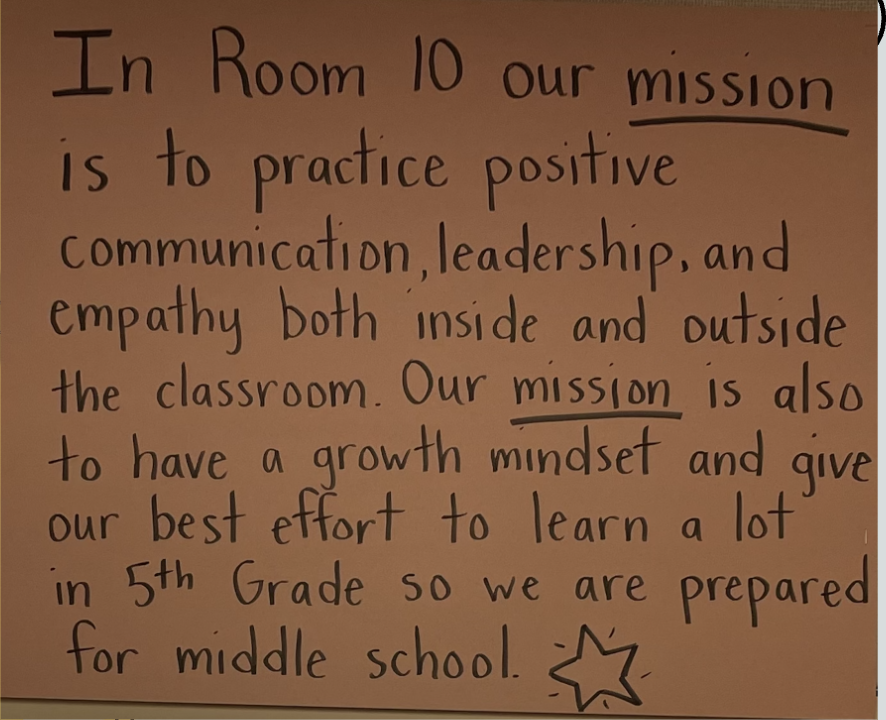 In Room 10 our mission
is to practice positive
communication, leadership, and
empathy both inside and outside
the classroom. Our mission is also
to have a growth mindset and give
our best effort to learn a lot
in 5th Grade so we are prepared
for middle school.